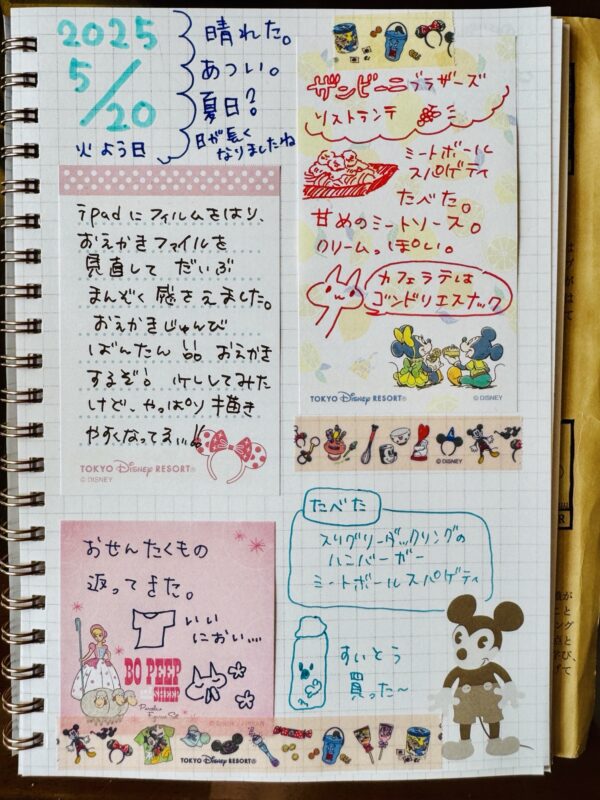 2025
5/20
火よう日
晴れた。
あつい。
夏日?
日が長く
なりましたね
ザンビーニブラザーズ
リストランテ
ミートボール
スパゲティ
たべた。
甘めのミートソース。
クリームっぽい。
カフェラテは
ゴンドリエスナック
TOKYO Disney RESORT®
© DISNEY
ipadにフィルムをはり、
おえかきファイルを
見直して だいぶ
まんぞく感をえました。
おえかきじゅんび
ばんたん!! おえかき
するぞ!
してみた
けど、やっぱり描き
やすくなってる…!!
TOKYO Disney RESORT®
© DISNEY
© DISNEY
おせんたくもの
返ってきた。
いい
におい…
BO PEEP
SHEEP
たべた
スリグリーダックリングの
ハンバーガー
ミートボールスパゲティ
すいとう
買った〜
TOKYO Disney RESORT®